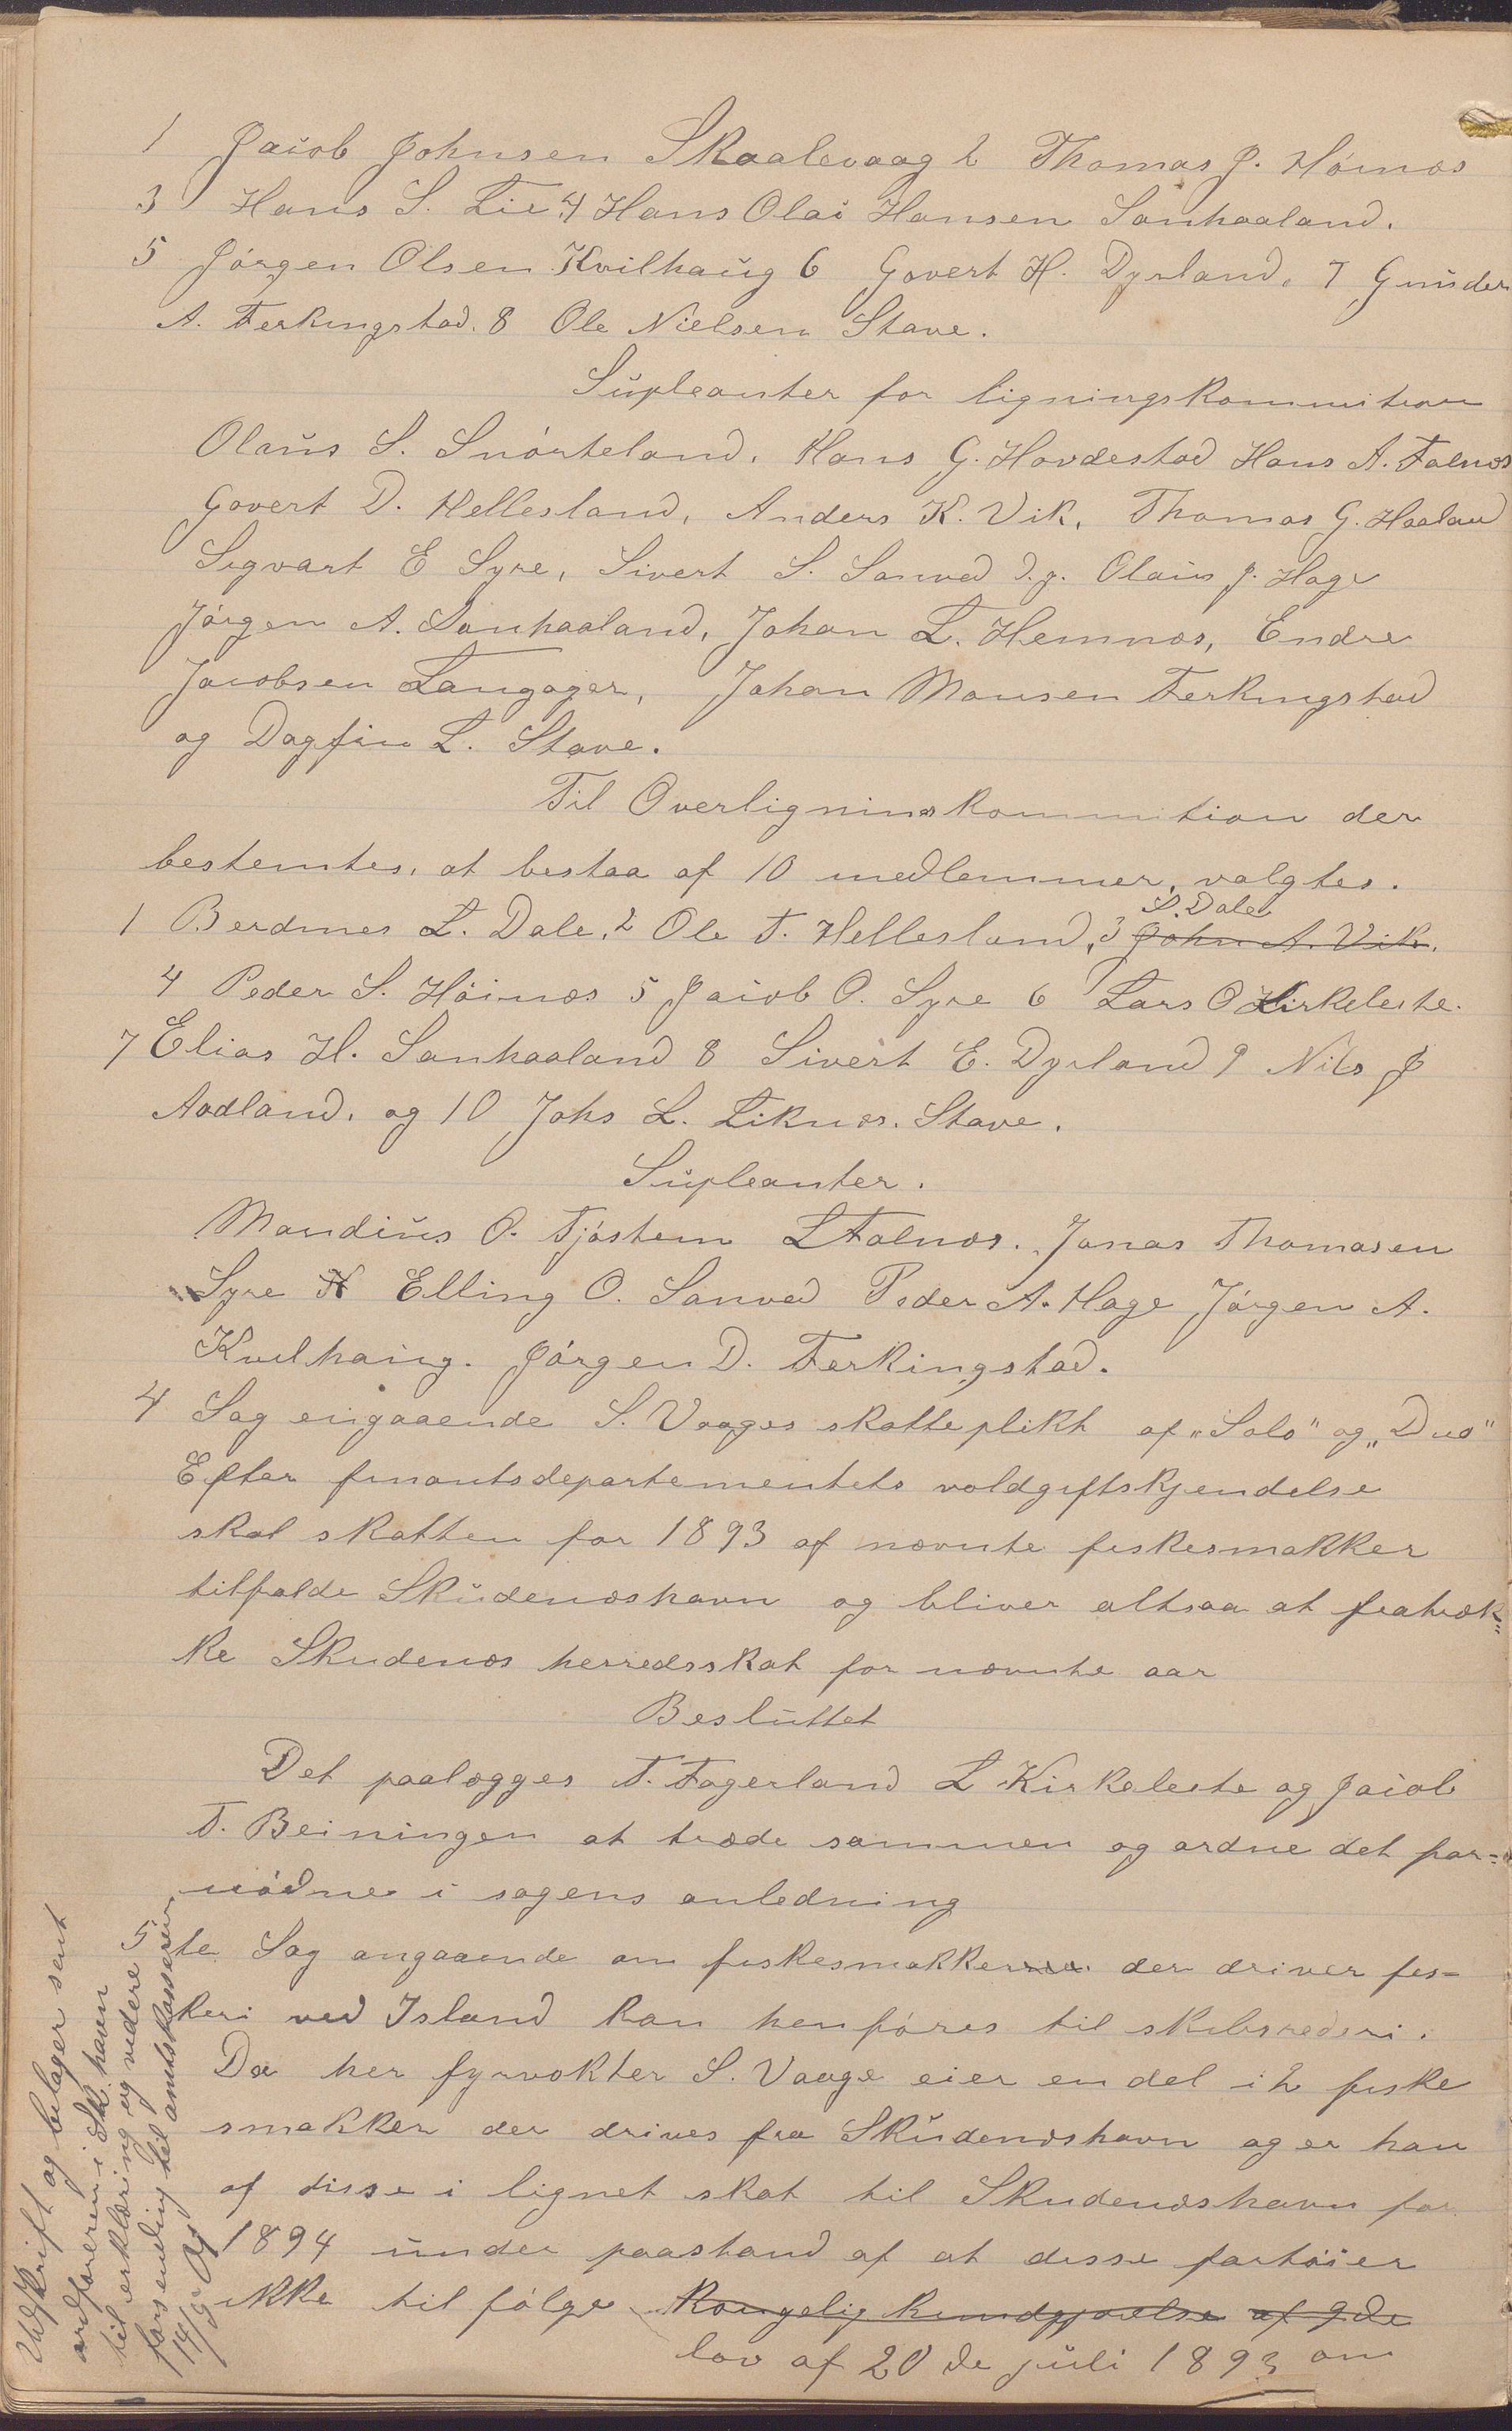 1 Jacob Johnsen Skaalevaag 2 Thomas J. Høinæs
3 Hans S. Lie 4 Hans Olai Hansen Sanhaaland.
5 Jørgen Olsen Kvilhaug 6 Govert H. Dyrland. 7 Gunder
A. Ferkingstad. 8 Ole Nielsen Stave.
Supleanter for ligningskommition
Olaus S. Snørteland. Hans G. Hovdestad Hans A. Falnæs
Govert D. Hellesland, Anders K. Vik, Thomas G. Haaland
Sigvart E Syre, Sivert S. Sanved d.y. Olaus J. Hage
Jørgen A. Sanhaaland, Johan L. Hemnæs, Endre
Jacobsen Langager, Johan Monsen Ferkingstad
og Dagfin L. Stave.
Til Overligninskommition der
bestemtes, at bestaa af 10 medlemmer, valgtes.
S. Dale
1 Berdines L. Dale, 2 Ole T. Hellesland, 3 John A. Vik.
4 Peder S. Høinæs 5 Jacob O. Syre 6 Lars O Kirkeleite.
7 Elias H. Sanhaaland 8 Sivert E. Dyrland 9 Nils J
Aadland. og 10 Johs L. Liknæs. Stave.
Supleanter.
Mandius O. Tjøstem L Falnæs. Jonas Thomasen
Syre Elling O. Sanved Peder A. Hage Jørgen A.
Kvilhaug. Jørgen D. Ferkingstad.
4 Sag engaaende S. Vaages skatteplikt af „Solo" og „Duo"
Efter finantsdepartementets voldgiftskjendelse
skal skatten for 1893 af nævnte fiskesmakker
tilfalde Skudenæshavn og bliver altsaa at fratræk„
ke Skudenæs herredsskat for nævnte aar
Besluttet
Det paalægges T. Fagerland L Kirkeleite og Jacob
T. Beiningen at træde sammen og ordne det for=
nødne i sagens anledning
5te Sag angaaende om fiskesmakker der driver fis=
keri ved Island kan henføres til skibsrederi.
Da her fyrvokter S. Vaage eier en del i 2 fiske
smakker der drives fra Skudenæshavn og er han
af disse i lignet skat til Skudenæshavn for
1894 under paastand af at disse fartøier
ikke til følge Kongelig kundgjørelse af 9de
lov af 20de juli 1893 om
Udskrift og bilager sent
ordføreren i Sk.havn
til erklæring og videre
forsending til amtskasserer
14/9